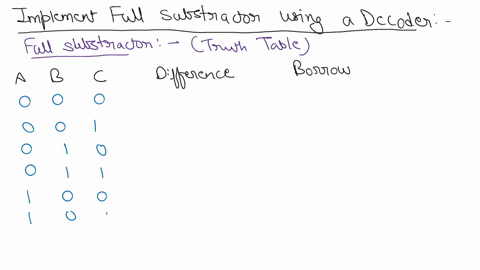 Implement Full substractor using a Decoder:-
Full substractor:- (Truth Table)
A B C Difference Borrow
0 0 0
0 0 1
0 1 0
0 1 1
1 0 0
1 0